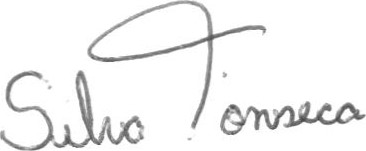 Silva Fonseca